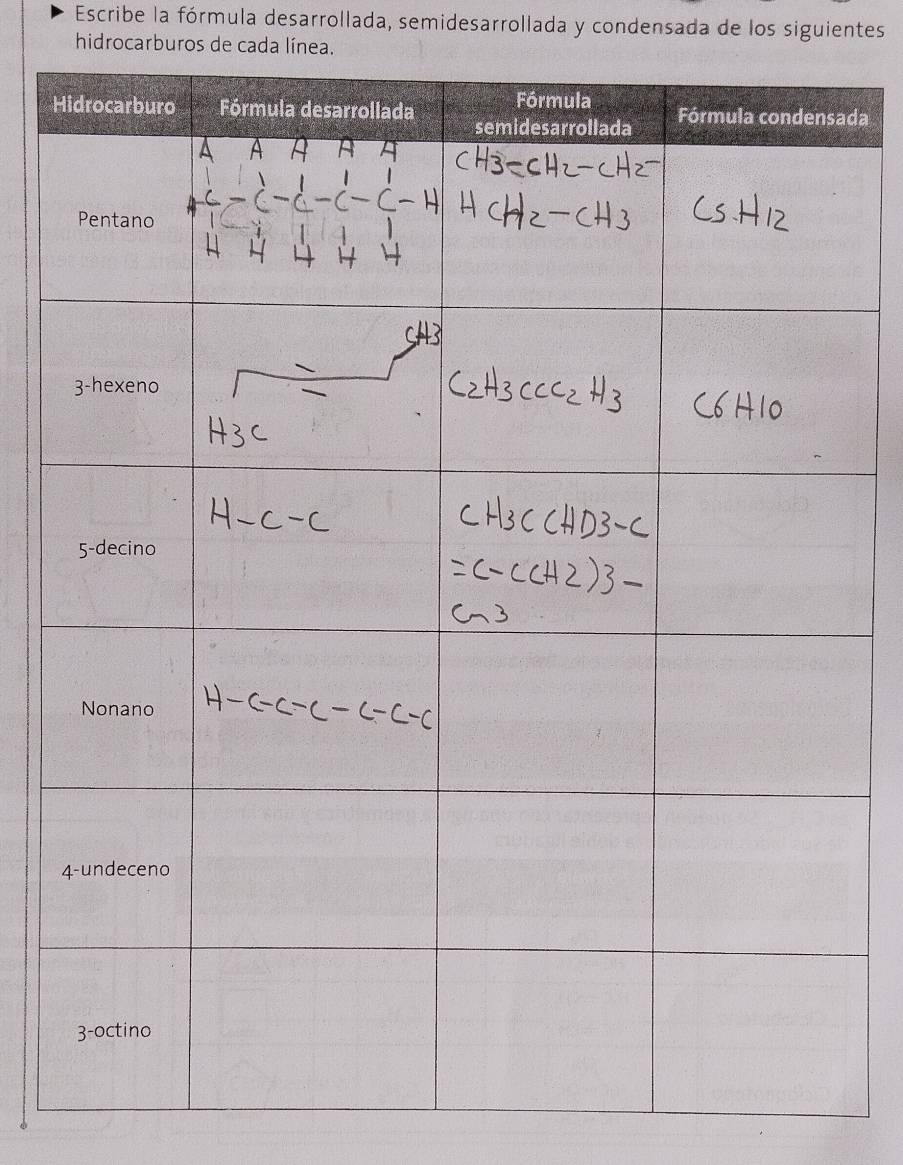 ▶ Escribe la fórmula desarrollada, semidesarrollada y condensada de los siguientes
hidrocarburos de cada línea.
Hidrocarburo Fórmula desarrollada Fórmula semidesarrollada Fórmula condensada
Pentano
H H H H H
H-C-C-C-C-C-H
H H H H H
CH3-CH2-CH2-
CH2-CH3
C5H12
3-hexeno
CH3
H3C
C2H3CCC2H3
C6H10
5-decino
H-C-C
CH3C(H2)3-C
=C-C(H2)3-
Cn3
Nonano
H-C-C-C-C-C-C
4-undeceno
3-octino